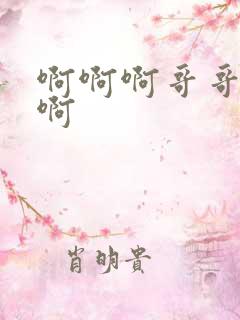 啊啊啊哥哥
啊
肖明贵